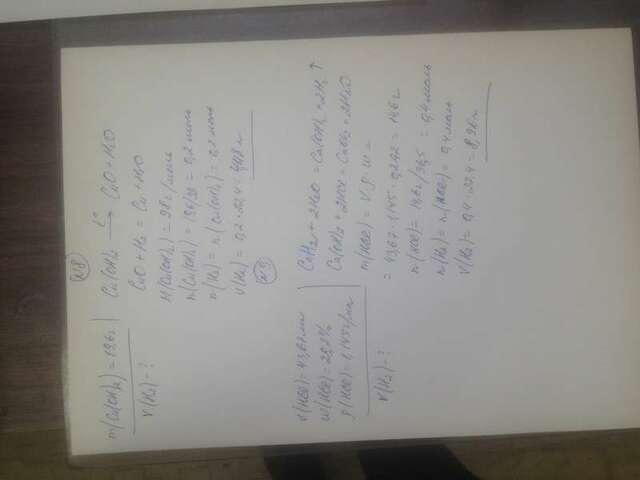 2.8
m(Cu(OH)₂) = 19,6 г
V(H₂) - ?
Cu(OH)₂ —t°→ CuO + H₂O
CuO + H₂ = Cu + H₂O
M(Cu(OH)₂) = 98 г/моль
n(Cu(OH)₂) = 19,6/98 = 0,2 моль
n(H₂) = n(Cu(OH)₂) = 0,2 моль
V(H₂) = 0,2 · 22,4 = 4,48 л
V(HCl) = 43,67 мл
ω(HCl) = 29,2%
ρ(HCl) = 1,145 г/мл
V(H₂) - ?
CaH₂ + 2H₂O = Ca(OH)₂ + 2H₂↑
Ca(OH)₂ + 2HCl = CaCl₂ + 2H₂O
m(HCl) = V · ρ · ω =
= 43,67 · 1,145 · 0,292 = 14,6 г
n(HCl) = 14,6/36,5 = 0,4 моль
n(H₂) = n(HCl) = 0,4 моль
V(H₂) = 0,4 · 22,4 = 8,96 л